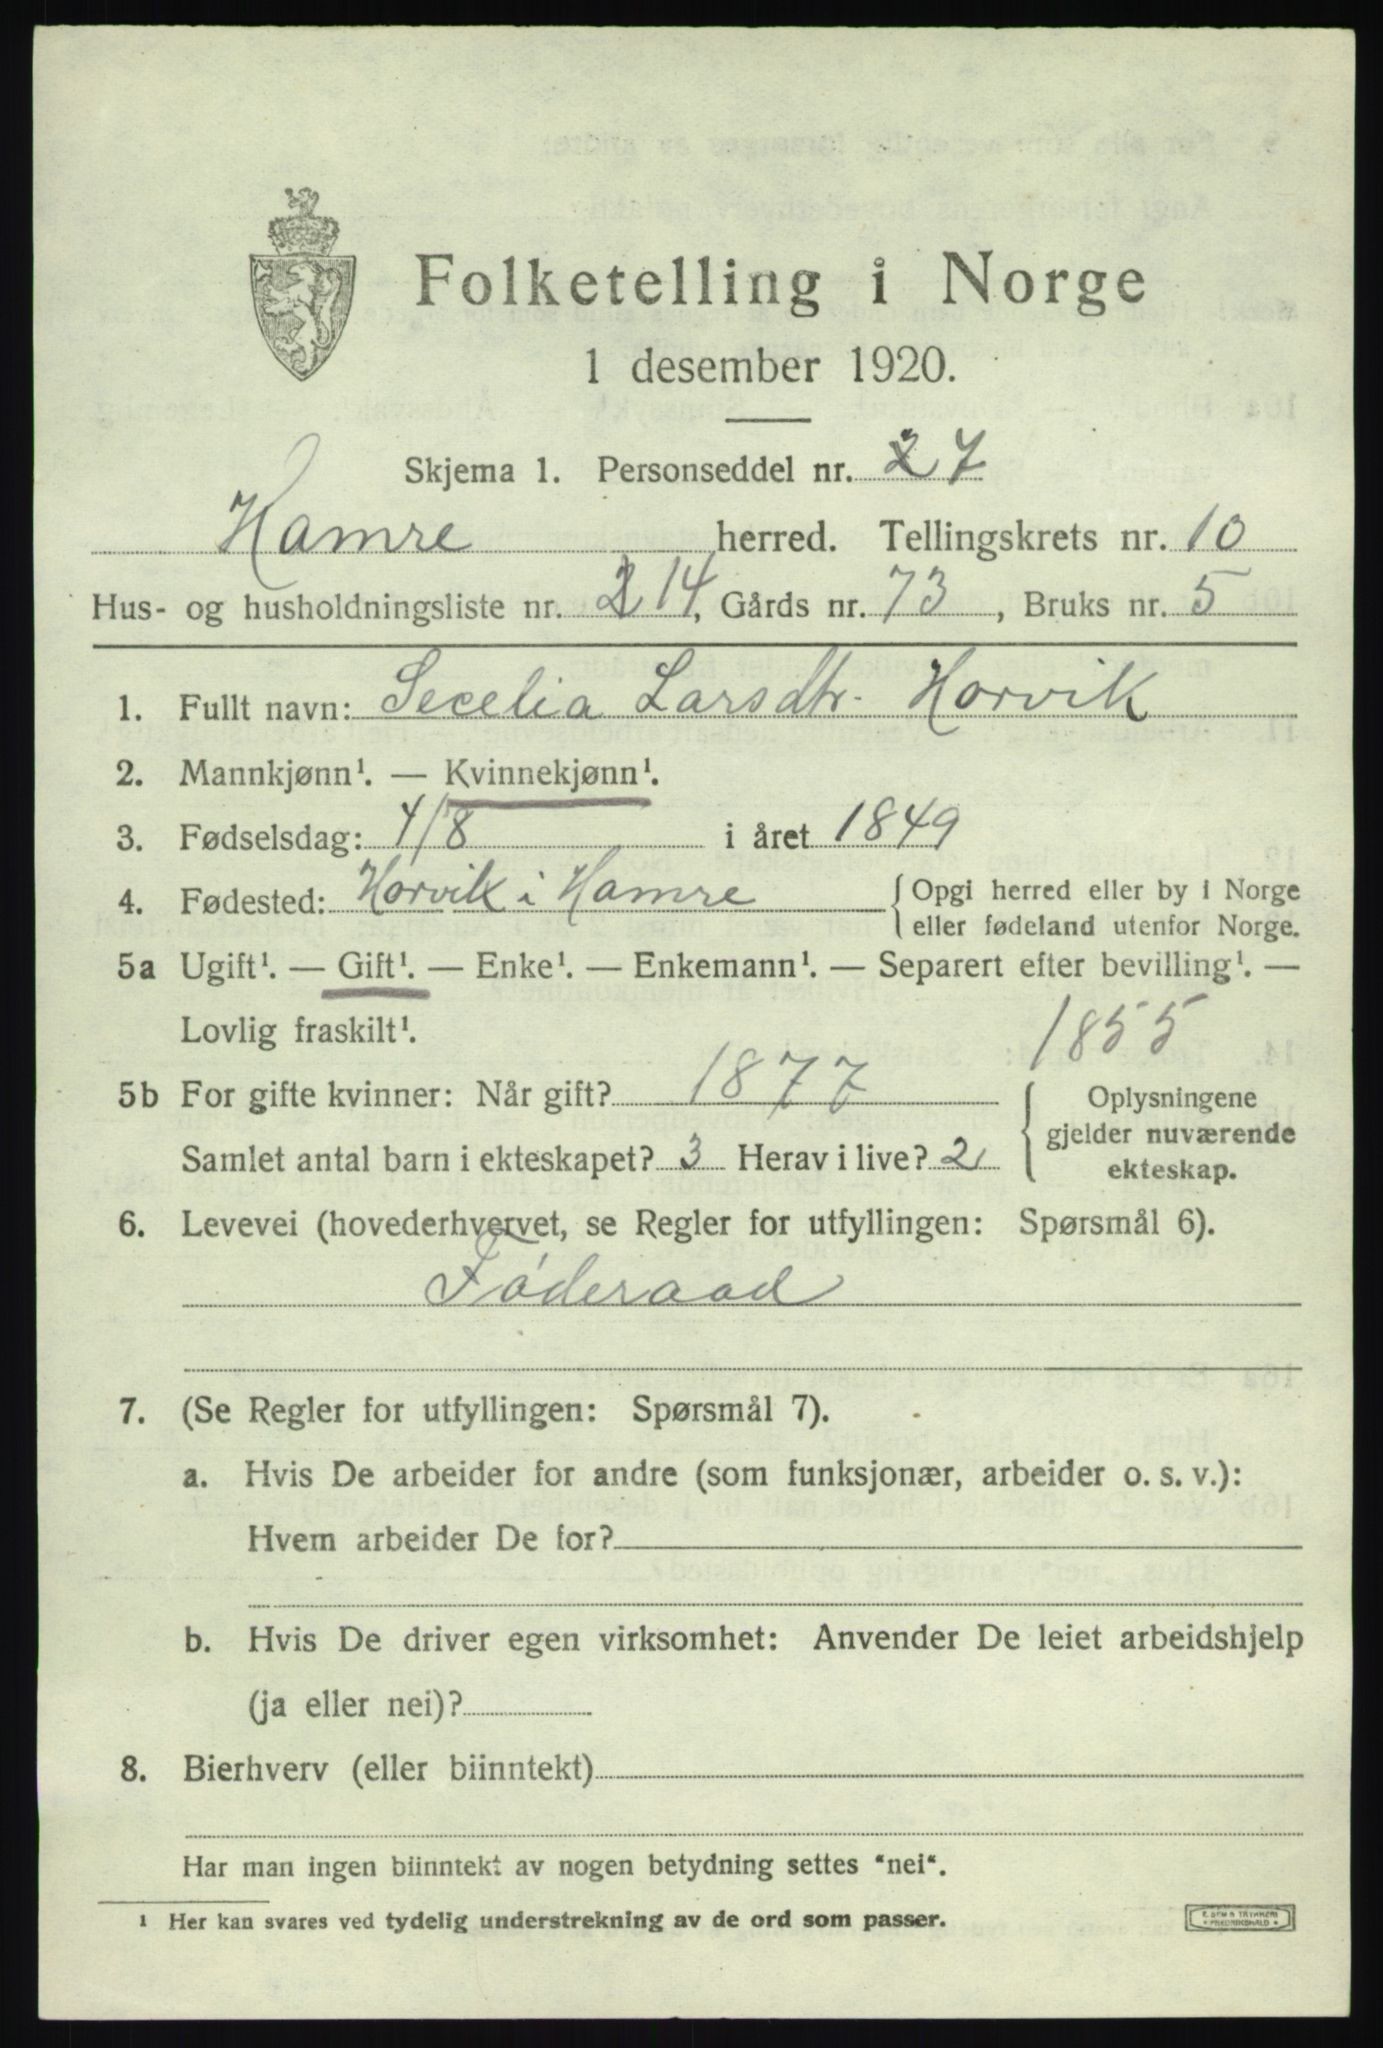 Folketelling i Norge
1 desember 1920.
Skjema 1. Personseddel nr. 27
Hamre herred. Tellingskrets nr. 10
Hus- og husholdningsliste nr. 214, Gårds nr. 73, Bruks nr. 5
1. Fullt navn: Secelia Larsdtr. Horvik
2. Mannkjønn¹. — Kvinnekjønn¹.
3. Fødselsdag: 4/8 i året 1849
4. Fødested: Horvik i Hamre { Opgi herred eller by i Norge
eller fødeland utenfor Norge.
5a Ugift¹. — Gift¹. — Enke¹. — Enkemann¹. — Separert efter bevilling¹. —
Lovlig fraskilt¹. 1855
5b For gifte kvinner: Når gift? 1877 { Oplysningene
gjelder nuværende
Samlet antal barn i ekteskapet? 3 Herav i live? 2
ekteskap.
6. Levevei (hovederhvervet, se Regler for utfyllingen: Spørsmål 6).
Föderaad
7. (Se Regler for utfyllingen: Spørsmål 7).
a. Hvis De arbeider for andre (som funksjonær, arbeider o. s. v.):
Hvem arbeider De for?
b. Hvis De driver egen virksomhet: Anvender De leiet arbeidshjelp
(ja eller nei)?
8. Bierhverv (eller biinntekt)
Har man ingen biinntekt av nogen betydning settes "nei".
¹ Her kan svares ved tydelig understrekning av de ord som passer.